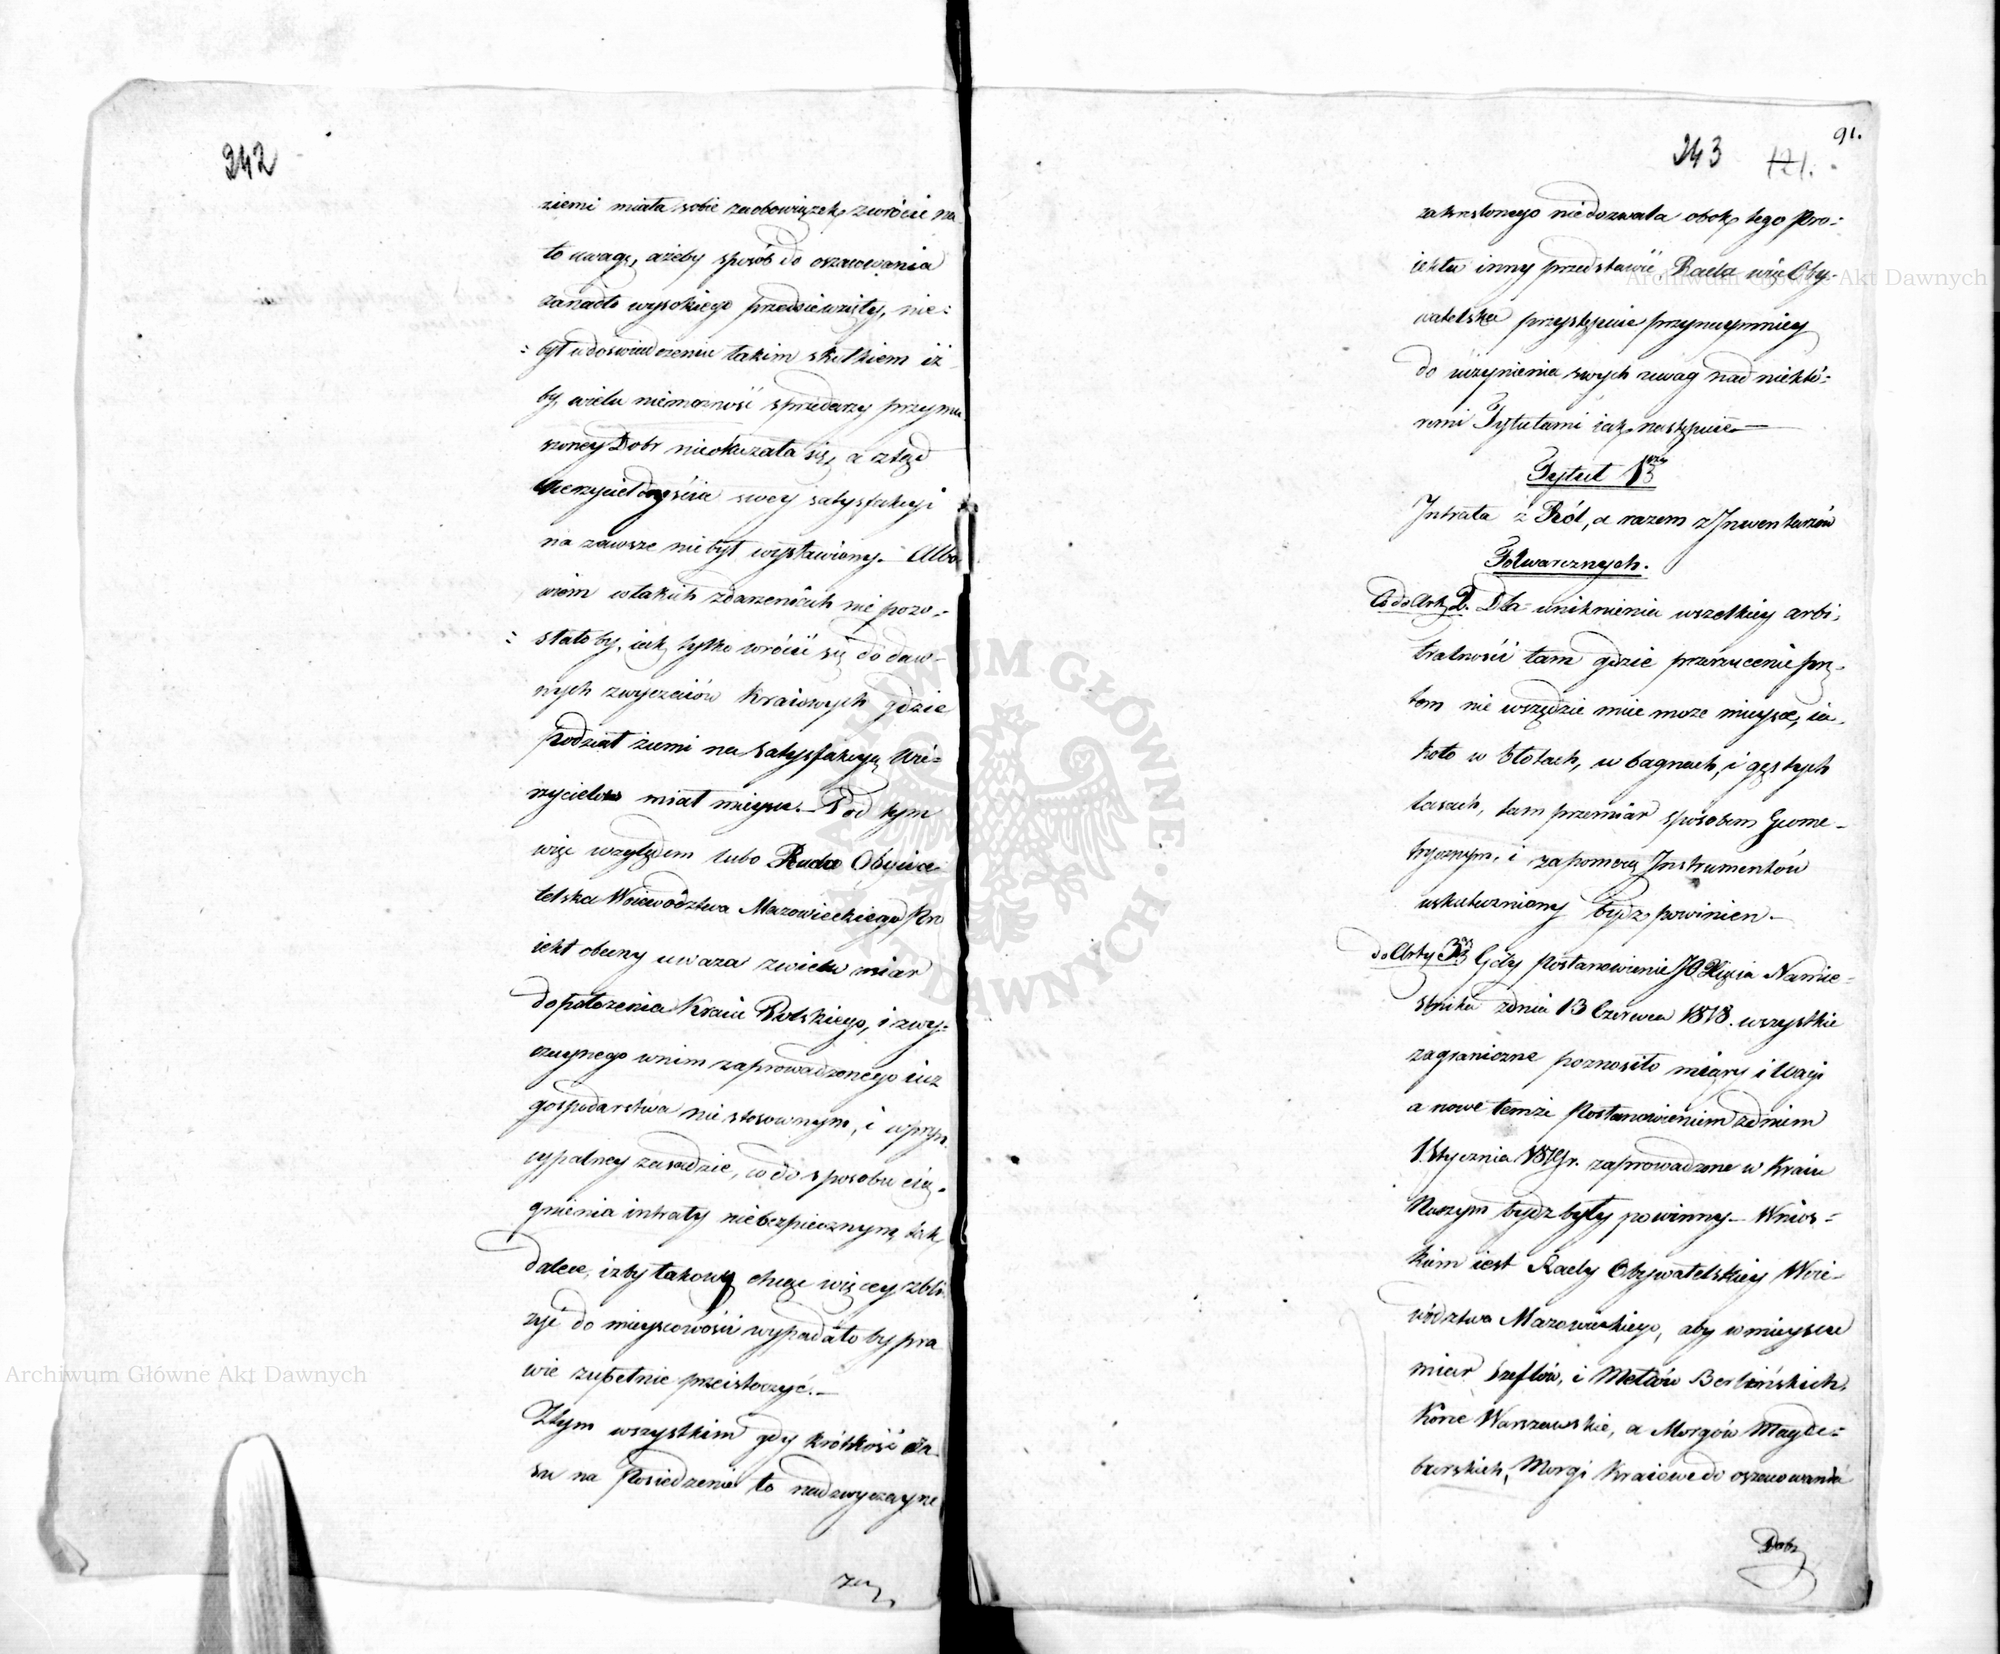 242
ziemi miała sobie za obowiązek zwrócić na
to uwagę, ażeby sposób do oszacowania
zanadto wysokiego przedsiewzięty, nie=
=był w doswiadczeniu takim skutkiem iż
by wielu niemożność sprzedarzy przymu
szoney Dobr nieokazała się, a ztąd
Wierzyciel w uyściu swey satysfakcyi
na zawsze nie był wystawiony. – Albo
wiem w takich zdarzeniach nie pozo-
=stało by, iak tylko wrócić się do daw-
nych zwyczaiów Kraiowych gdzie
podział ziemi na satysfakcyą Wie=
rzycielów miał mieysce. – Pod tym
więc względem lubo Rada Obywa
telska Woiewództwa Mazowieckiego Pro
iekt obecny uważa z wielu miar
do położenia Kraiu Polskiego, i zwy-
czaynego w nim zaprowadzonego iuż
gospodarstwa nie stosownym, i w pryn
cypalney zasadzie, co do sposobu cią-
gnienia intraty niebezpiecznym, tak
dalece, iżby takowy chcąc więcey zbli
żyć do mieyscowości wypadało by pra
wie zupełnie przeistoczyć. –
Z tym wszystkim gdy krótkość cza-
su na Posiedzenie to nadzwyczayne
za
91.
243 121.
zakreslonego niedozwala obok tego Pro=
iektu inny przedstawić, Rada więc Oby-
watelska przystępuie przynaymniey
do uczynienia swych uwag nad niektó=
remi Tytułami iak następuie –
Tytuł 1szy
Intrata z Ról, a razem z Inwentarzów
Folwarcznych.
Co do Art. 2. Dla uniknienia wszelkiey arbi.
tralności tam gdzie przerzucenie prę-
tem nie wszędzie mieć może mieysce, ia-
koto w błotach, w bagnach, i gęstych
lasach, tam przemiar sposobem Geome-
trycznym, i za pomocą Instrumentów
uskuteczniony bydz powinien. –
do Arty 3. Gdy Postanowienie JO Xięcia Namie-
stnika z dnia 13 Czerwca 1818. wszystkie
zagraniczne poznosiło miary i Wagi
a nowe temże Postanowieniem z dniem
1 Stycznia 1819 r. zaprowadzone w Kraiu
Naszym bydz były powinny – Wnios=
kiem iest Rady Obywatelskiey Woie-
wództwa Mazowieckiego, aby w mieysce
miar Szeflów, i Metów Berlińskich,
Korce Warszawskie, a Morgów Magde=
burskich, Morgi Kraiowe do oszacowania
Dobr
Archiwum Główne Akt Dawnych
Archiwum Główne Akt Dawnych
ARCHIWUM GŁÓWNE AKT DAWNYCH